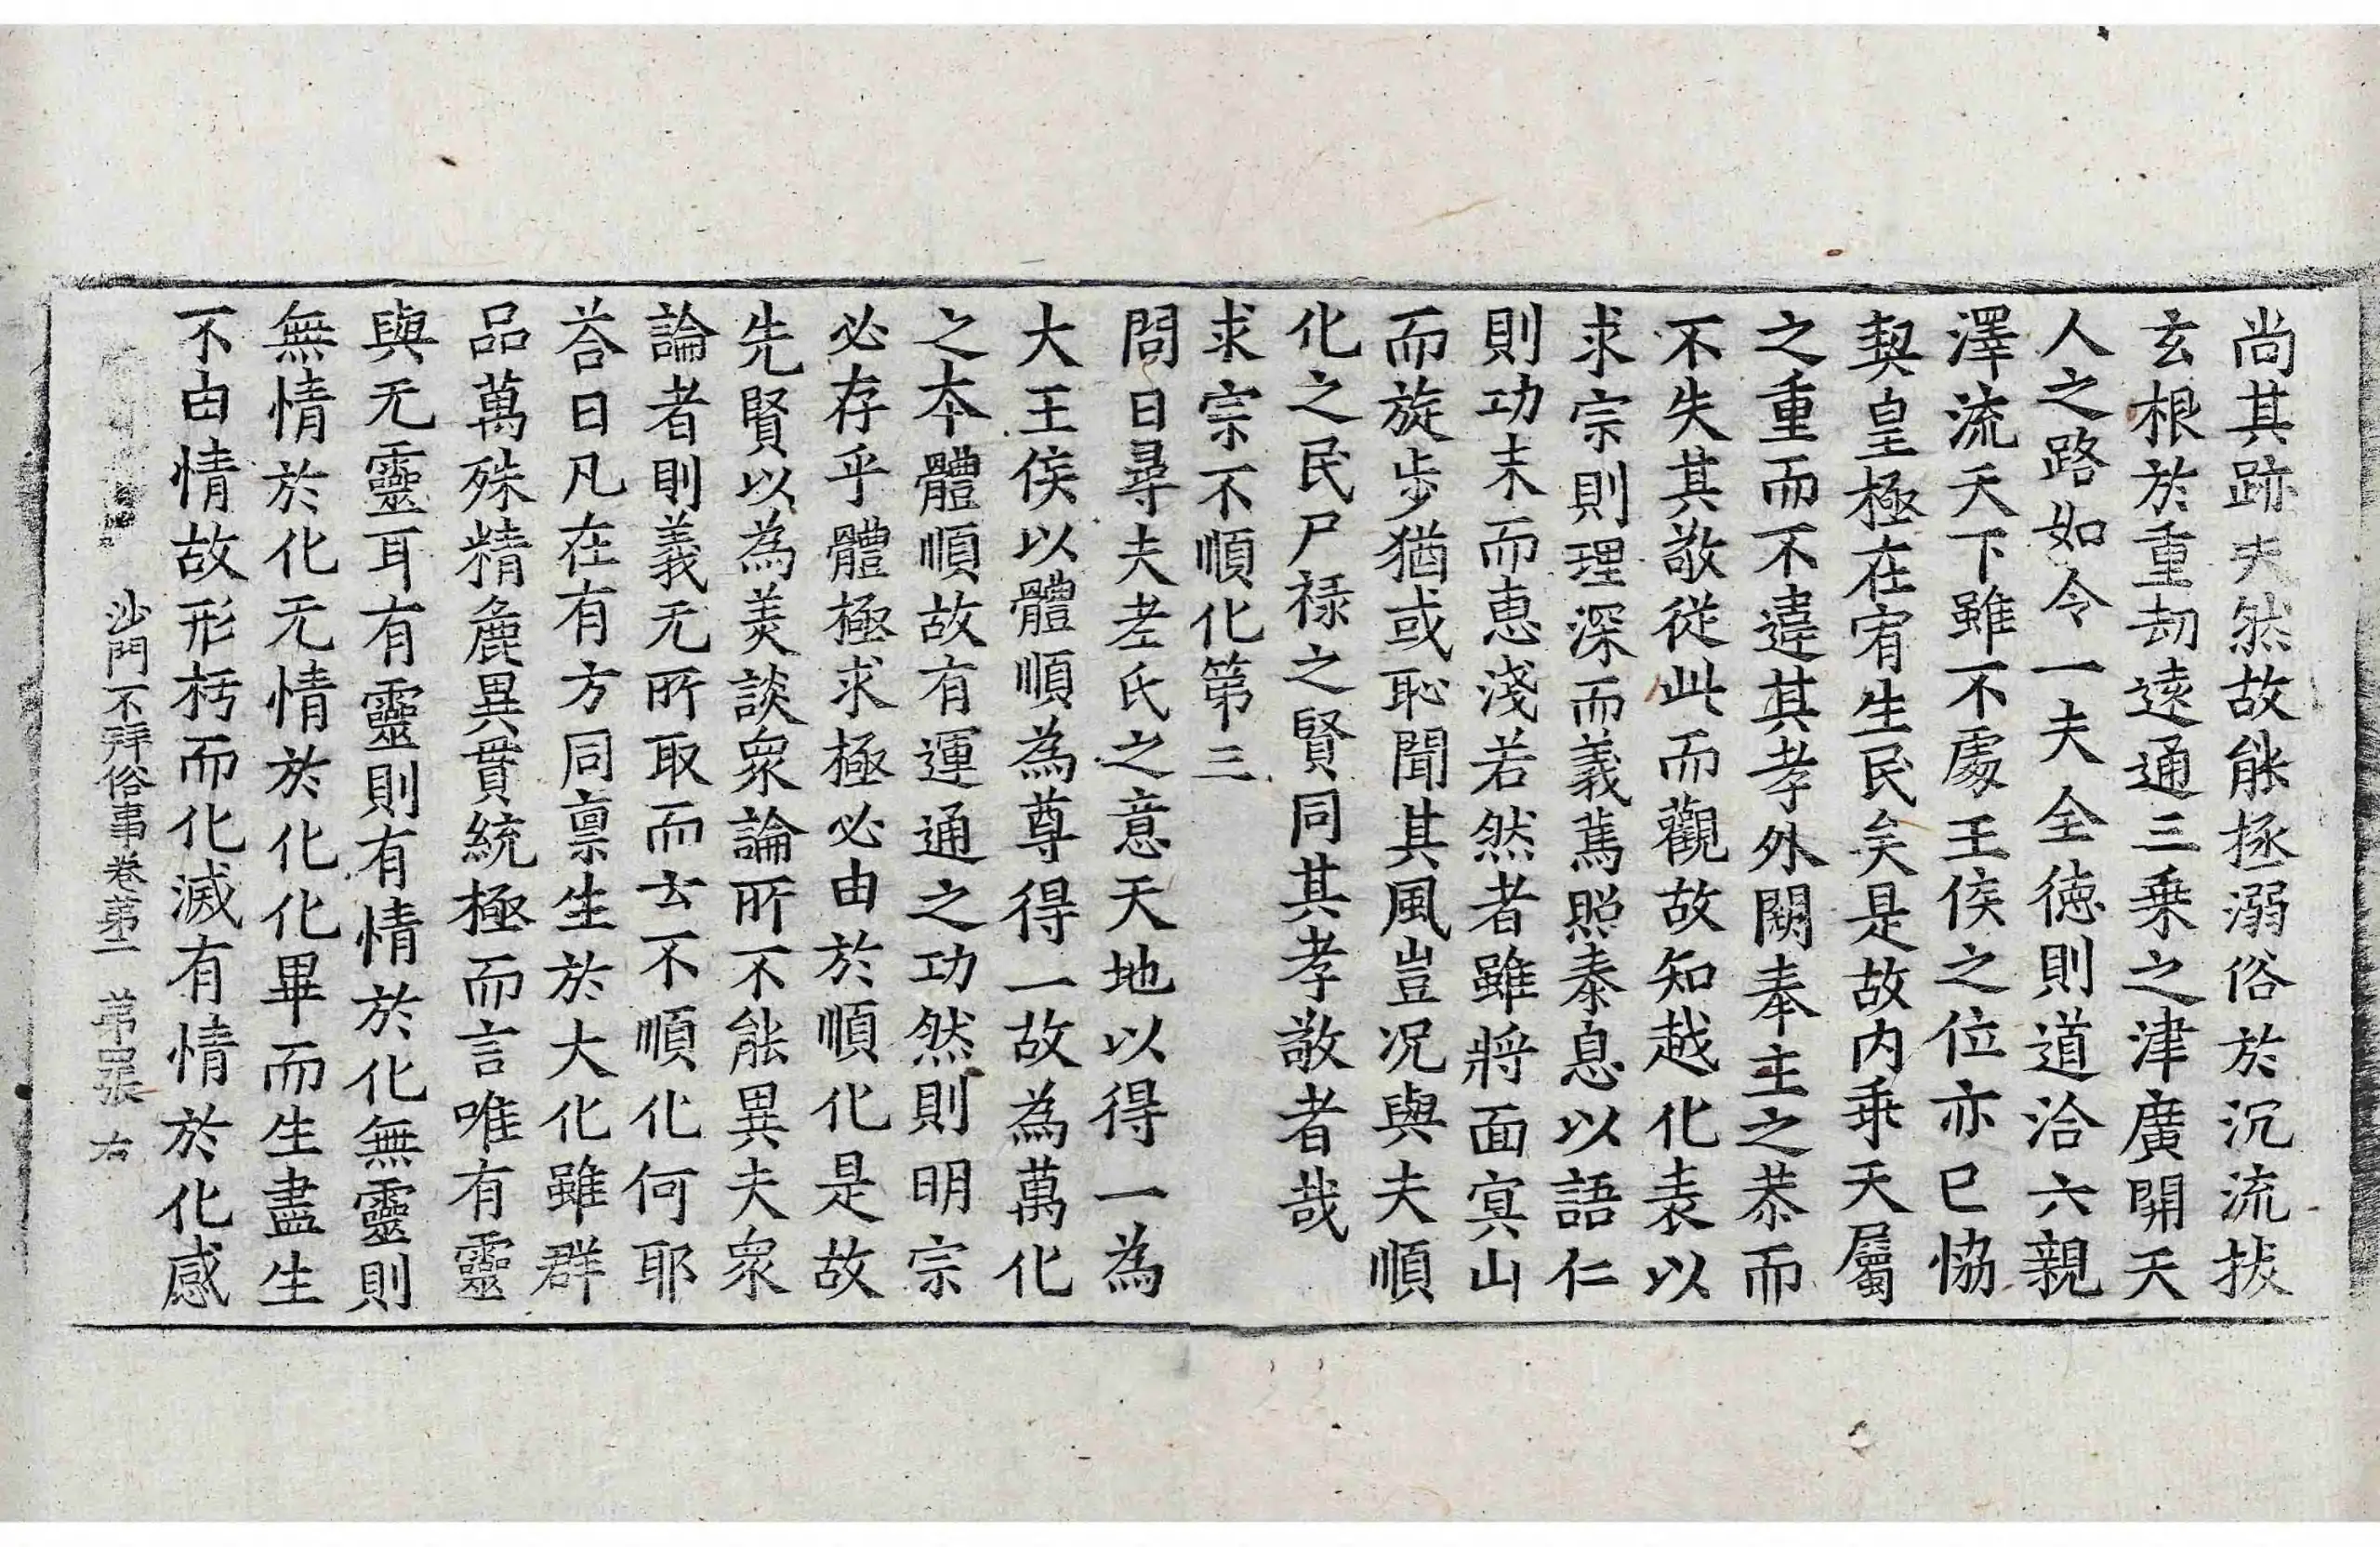 尚其跡夫然故能拯溺俗於沉流拔
玄根於重劫遠通三乗之津廣開天
人之路如令一夫全徳則道洽六親
澤流天下雖不處王侯之位亦已恊
契皇極在宥生民矣是故内乖天屬
之重而不違其孝外闕奉主之恭而
不失其敬從此而觀故知越化表以
求宗則理深而義篤照泰息以語仁
則功末而恵淺若然者雖將面㝠山
而旋歩猶或恥聞其風豈况與夫順
化之民尸禄之賢同其孝敬者哉
求宗不順化第三
問曰尋夫老氏之意天地以得一為
大王侯以體順為尊得一故為萬化
之本體順故有運通之功然則明宗
必存乎體極求極必由於順化是故
先賢以為美談衆論所不能異異夫衆
論者則義无所取而云不順化何耶
荅曰凡在有方同禀生於大化雖群
品萬殊精麁異貫統極而言唯有靈
與无靈耳有靈則有情於化無靈則
無情於化无情於化化畢而生盡生
不由情故形朽而化滅有情於化感
沙門不拜俗事卷第二 第四張 右